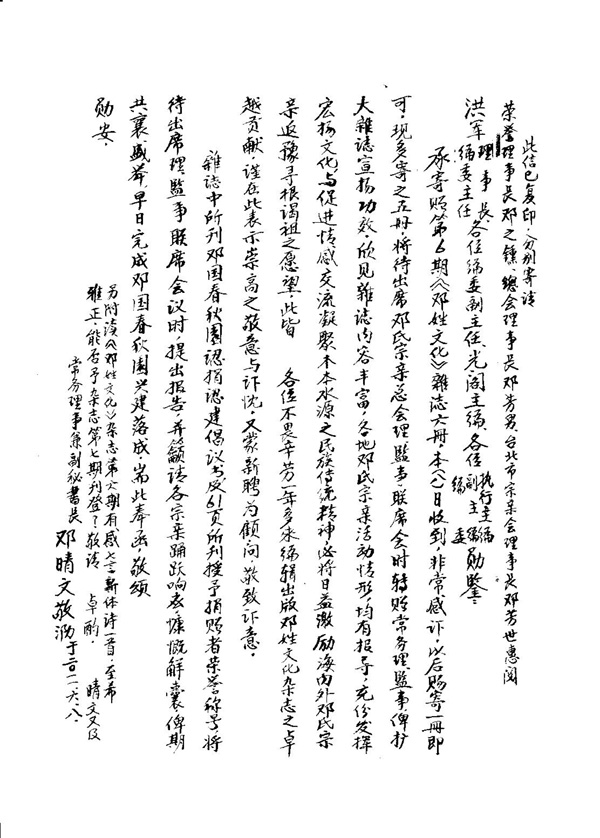 此信已复印,分别寄请
荣誉理事长邓之锺、总会理事长邓芳男、台北市宗亲会理事长邓芳世惠阅
洪军 理事长 编委主任 各位编委副主任、光阁主编、各位 执行主编 副主编 编委 勋鉴:
承寄赐第6期《邓姓文化》雜誌六冊,本(八)日收到,非常感讷,以后赐寄一冊即
可,现多寄之五冊,将待出席邓氏宗亲总会理、监事联席会时转贻常务理、监事,俾扩
大雜誌宣扬功效,欣见雜誌内容丰富,各地邓氏宗亲活动情形,均有报导,充份发挥
宏扬文化与促进情感交流,凝聚木本水源之民族传统精神,必将日益激励海内外邓氏宗
亲返豫寻根谒祖之愿望,此皆 各位不畏辛劳一年多来编辑出版邓姓文化杂志之卓
越贡献,谨在此表示崇高之敬意与讷忱,又蒙新聘为顾问,敬致讷意。
雜誌中所刊邓国春秋園認捐認建倡议书及61页所刊授予捐贻者荣誉称号,将
待出席理、监事联席会议时,提出报告,并籲请各宗亲踊跃响应,慷慨解囊,俾期
共襄盛举,早日完成邓国春秋園兴建落成,耑此奉函,敬颂
勋安。
另附读《邓姓文化》杂志第六期有感七言新体诗一首,至希
雅正,能否予杂志第七期刊登?敬请 卓酌。 晴文又及
常务理事兼副秘書长 邓晴文敬泐于二〇一二、六、八、